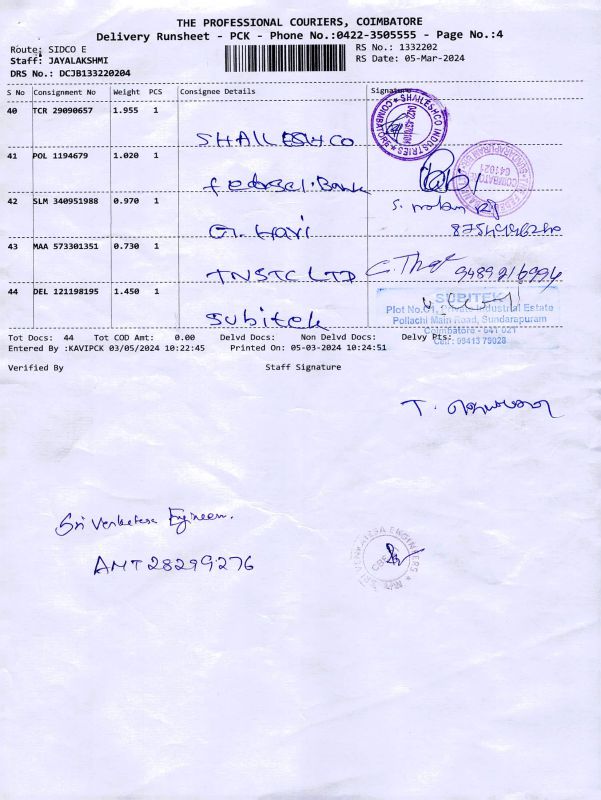 THE PROFESSIONAL COURIERS, COIMBATORE
Delivery Runsheet - PCK - Phone No.:0422-3505555 - Page No.:4
Route: SIDCO E
RS No.: 1332202
Staff: JAYALAKSHMI
RS Date: 05-Mar-2024
DRS No.: DCJB133220204
S No Consignment No Weight PCS Consignee Details Signature
40 TCR 29090657 1.955 1
SHAILESHCO
SHAILESHCO INDUSTRIES
41 POL 1194679 1.020 1
Federal Bank
COIMBATORE
641021
42 SLM 340951988 0.970 1
G. Hari
43 MAA 573301351 0.730 1
TNSTC LTD
44 DEL 121198195 1.450 1
Subitek
SUBITEK
Industrial Estate
Pollachi Main Road, Sundarapuram
Coimbatore - 641 021
Tot Docs: 44 Tot COD Amt: 0.00 Delvd Docs: Non Delvd Docs: Delvy Pts:
Entered By :KAVIPCK 03/05/2024 10:22:45 Printed On: 05-03-2024 10:24:51
Verified By Staff Signature
Sri Venkatesa Engineers.
AMT 28299276
SRI VENKATESA ENGINEERS